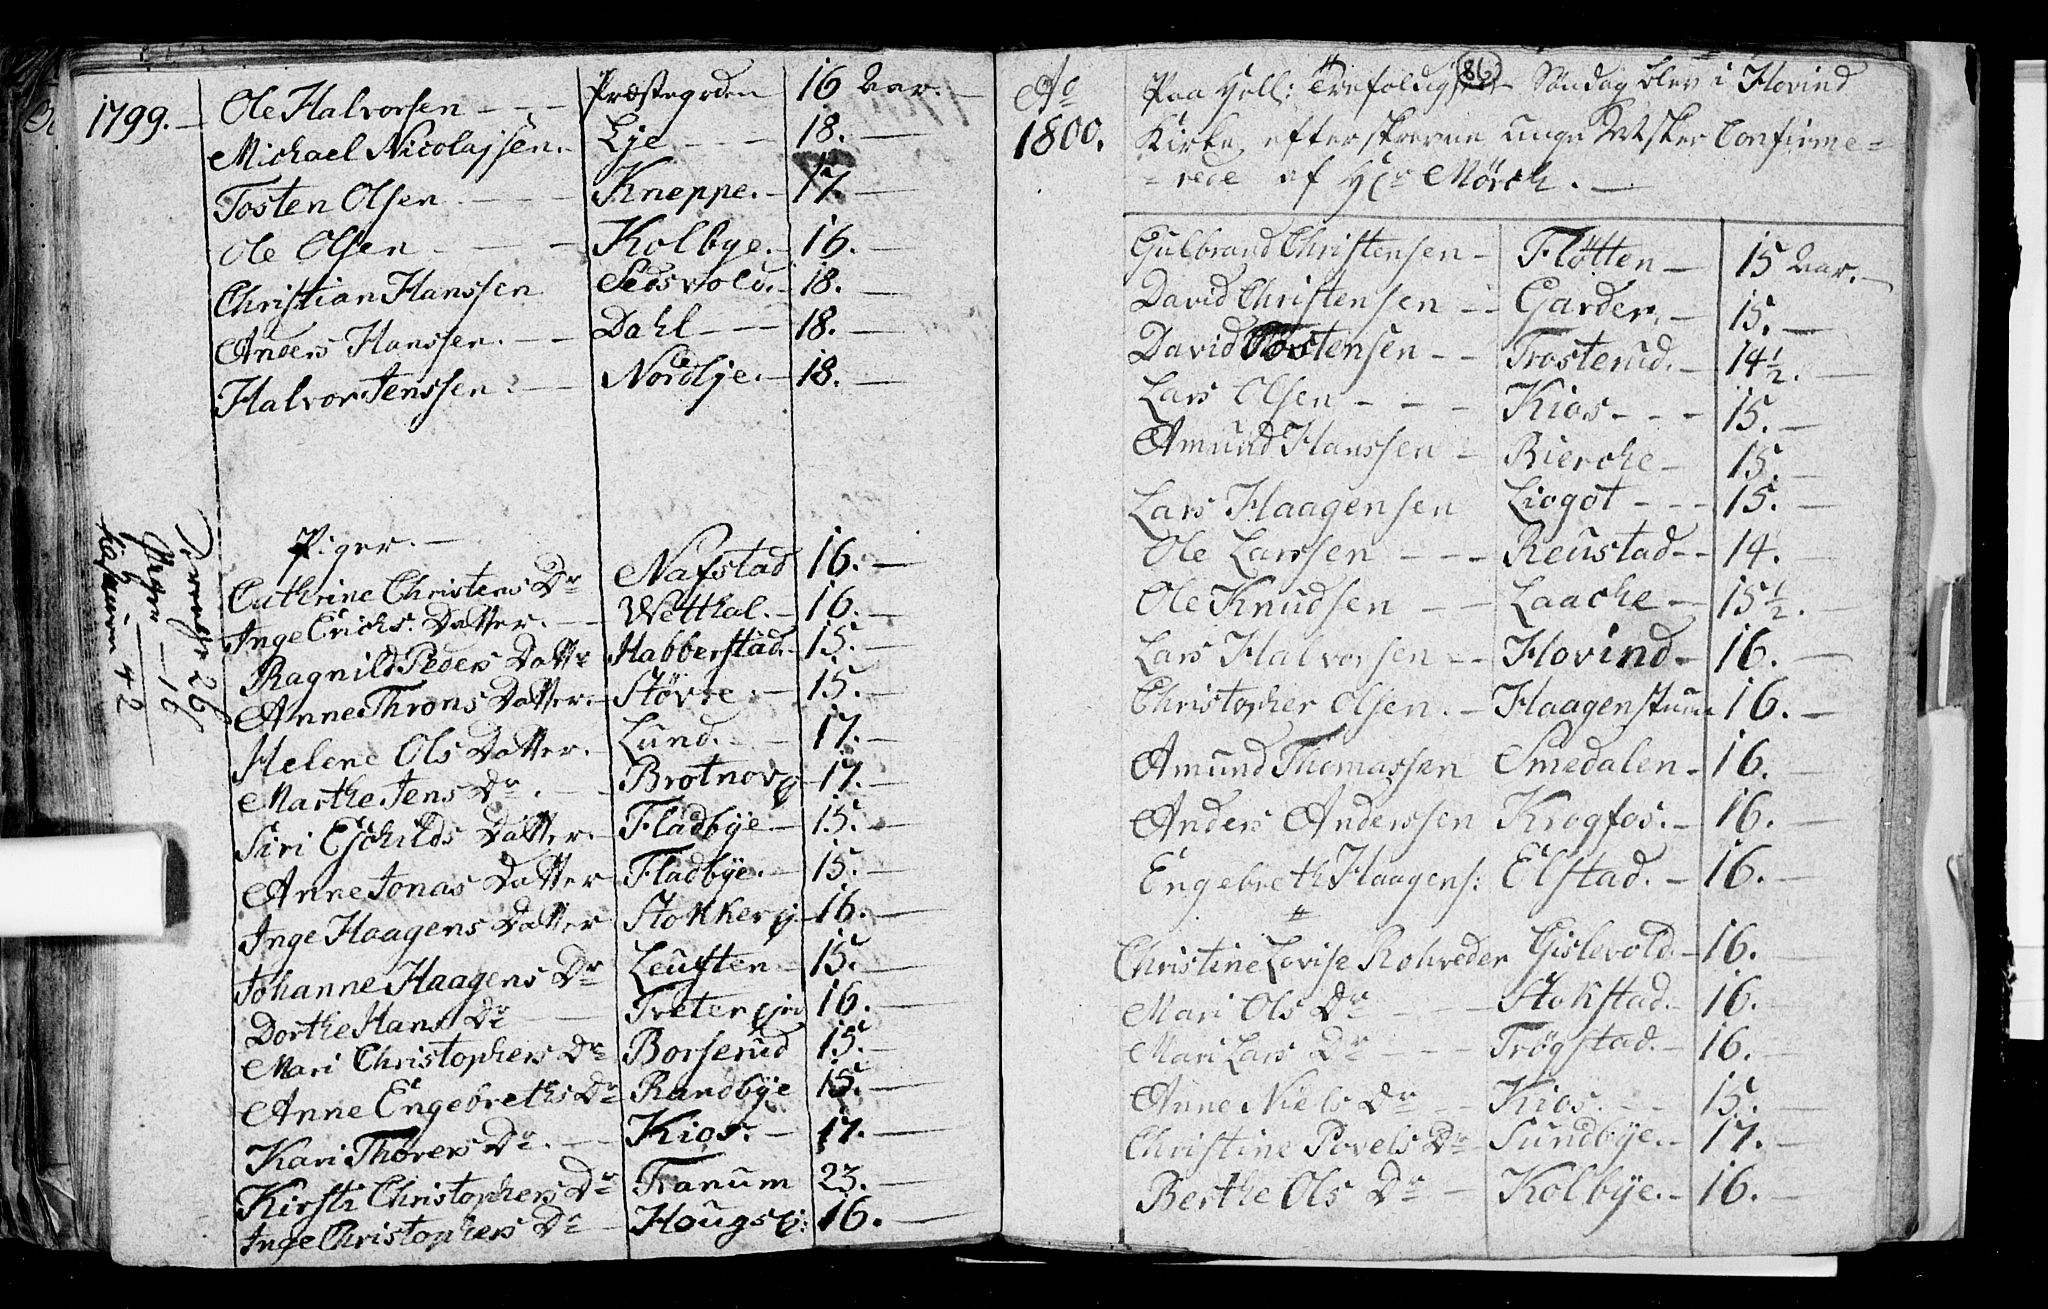 1799. Ole Halvorsen Præstegrden 16 Aar.
Michael Nicolajsen. Lje 18.
Tosten Olsen Kneppe. 17.
Ole Olsen Kolbye. 16.
Christian Hanssen Sedsvold. 18.
Anders Hanssen. Dahl 18.
Halvor Jenssen Nordlje. 18.
Piger.
Cathrine Christens Dr Nafstad 16.
Inge Erichs. Datter. Wetthal. 16.
Ragnild Peders Dattr Habberstad. 15.
Anne Throns Datter. Støvre. 15.
Helene Ols Datter. Lund. 17.
Marthe Jens Dr. Brotnorg 17.
Siri Eschilds Datter. Fladbye 15.
Anne Jonas Datter Fladbye. 15.
Inge Haagens Datter Stokkerg 16.
Johanne Haagens Dr Leuften 15.
Dorthe Hans Dr 16.
Mari Christophers Dr Borserud 15.
Anne Engebreths Dr Randbye 15.
Kari Thorers Dr. Kios. 17.
Kirsti Christophers Dr Tranum 23.
Inge Christophers Dr Hougs 16.
Drenge 26
Piger 16
Summa 42
86
Ao
1800.
Paa Hell: Trefoldigh: Søndag blev i Hovind
Kirke, efterskrevne unge Msker Confirme=
=rede af Hr Mörch.
Gulbrand Christensen Fløtten 15 Aar.
David Christensen Garder. 15.
David Tostensen Trosterud. 14 1/2.
Lars Olsen Kios 15.
Amund Hanssen Bierche 15.
Lars Haagensen Liogot 15.
Ole Larssen Reustad 14.
Ole Knudsen Laache 15 1/2.
Lars Halvorsen Hovind 16.
Christopher Olsen. Haagenstuun 16.
Amund Thomassen Smedalen 16.
Anders Anderssen Krogfos. 16.
Engebreth Haagens: Elstad. 16.
Christine Lovise Rohweder Gislevold. 16.
Mari Ols Dr Stokstad. 16.
Mari Lars Dr Trøgstad. 16.
Anne Niels Dr Kios. 15.
Christine Povels Dr Sundbye. 17.
Berthe Ols Dr Kolbye. 16.